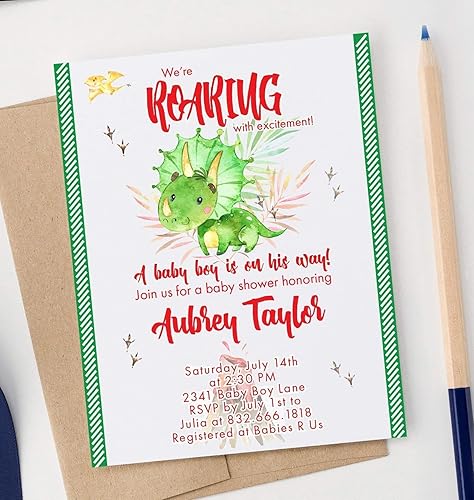 We're
ROARING
with excitement!
A baby boy is on his way!
Join us for a baby shower honoring
Aubrey Taylor
Saturday, July 14th
at 2:30 PM
2341 Baby Boy Lane
RSVP by July 1st to
Julia at 832.666.1818
Registered at Babies R Us